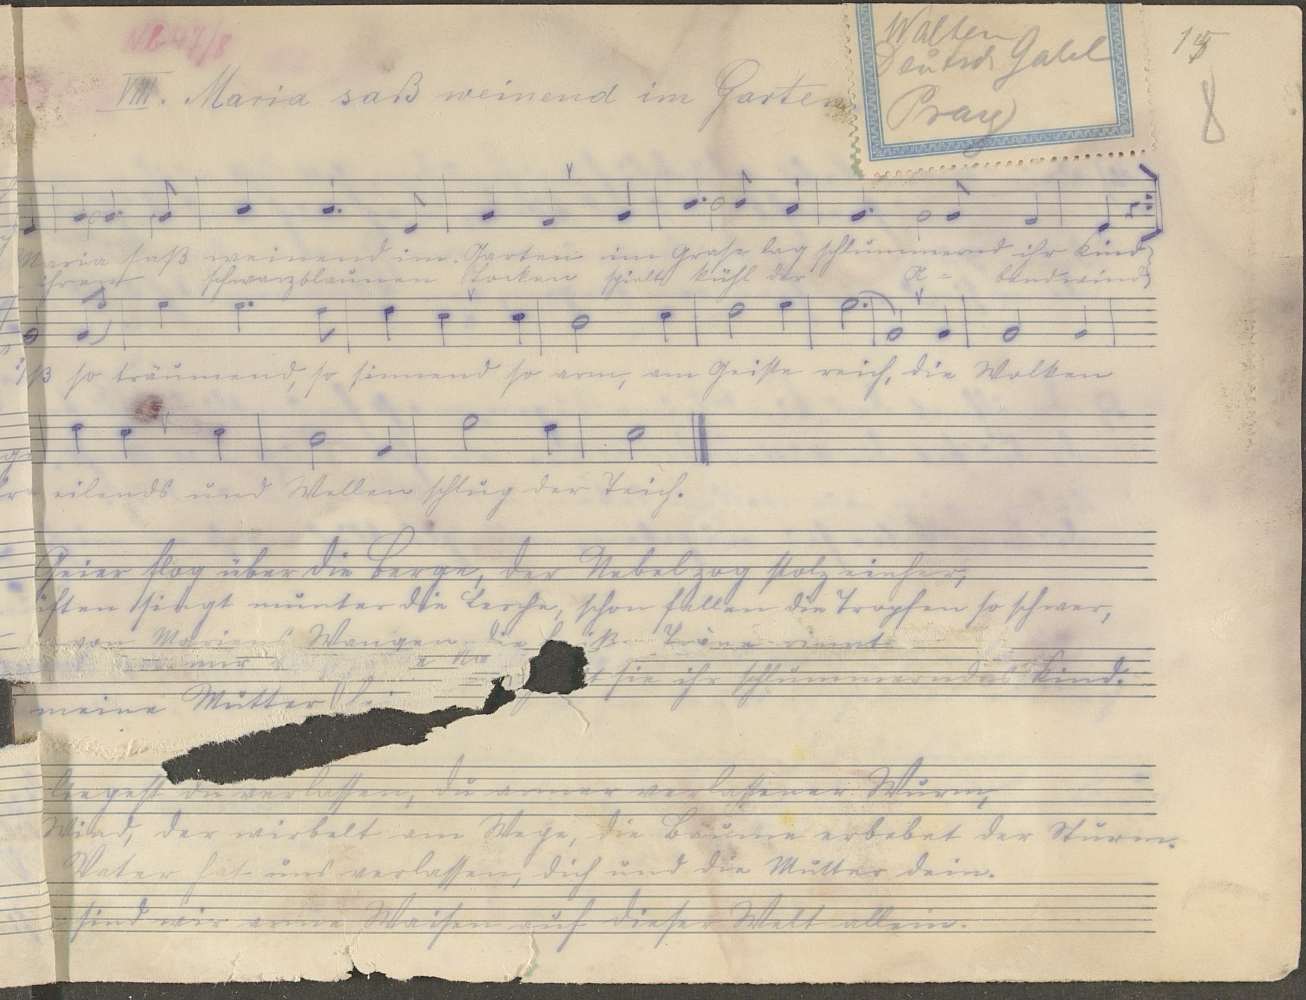 VIII. Maria saß weinend im Garten
Walter
Deutsch Gabel
Prag
15
8
Maria saß weinend im Garten im Grase lag schlummernd ihr Kind
ihren schwarzblaunen Locken spielt kühl der A- bendwind
so träumend, so sinnend so arm, am Geiste reich, die Wolken
eilends und Wellen schlug der Teich.
Geier flog über die Berge, der Nebel zog stolz einher,
singt munter die Lerche, schon fallen die Tropfen so schwer,
von Mariens Wangen die Träne rinnt
sie ihr schlummerndes Kind.
meine Mutter
Liegest du verlassen, du armer verlassener Wurm,
Wind, der wirbelt am Wege, die Bäume erbebet der Sturm.
Vater hat uns verlassen, dich und die Mutter dein.
sind wir arme Waisen auf dieser Welt allein.